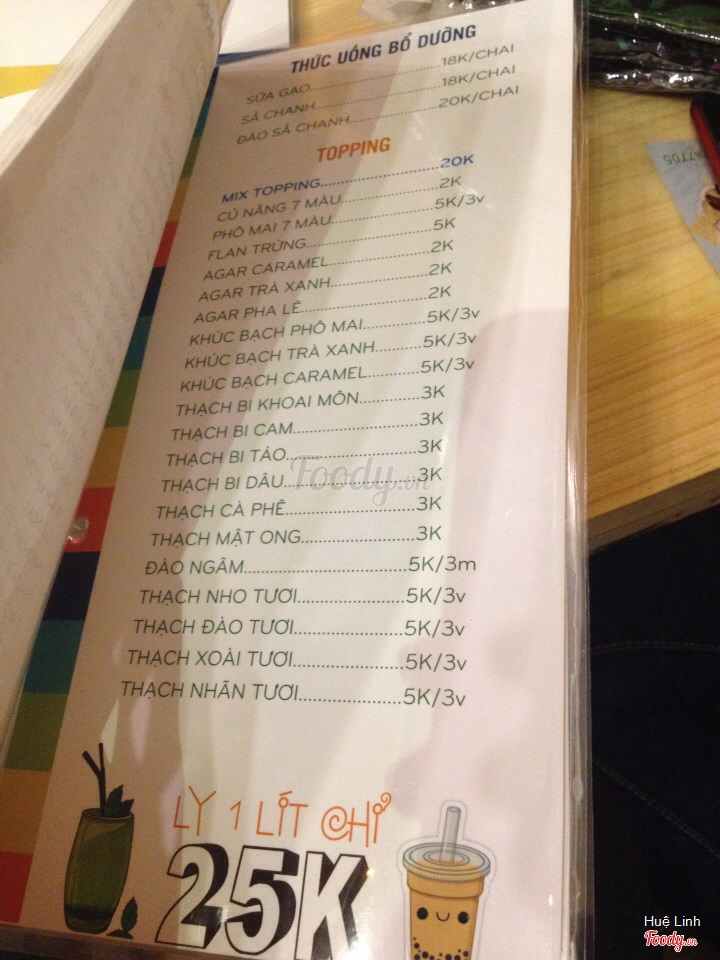 THỨC UỐNG BỔ DƯỠNG
SỮA GẠO..........18K/CHAI
SẢ CHANH..........18K/CHAI
ĐÀO SẢ CHANH..........20K/CHAI
TOPPING
MIX TOPPING..........20K
CỦ NĂNG 7 MÀU..........2K
PHÔ MAI 7 MÀU..........5K/3v
FLAN TRỨNG..........5K
AGAR CARAMEL..........2K
AGAR TRÀ XANH..........2K
AGAR PHA LÊ..........2K
KHÚC BẠCH PHÔ MAI..........5K/3v
KHÚC BẠCH TRÀ XANH..........5K/3v
KHÚC BẠCH CARAMEL..........5K/3v
THẠCH BI KHOAI MÔN..........3K
THẠCH BI CAM..........3K
THẠCH BI TÁO..........3K
THẠCH BI DÂU..........3K
THẠCH CÀ PHÊ..........3K
THẠCH MẬT ONG..........3K
ĐÀO NGÂM..........5K/3m
THẠCH NHO TƯƠI..........5K/3v
THẠCH ĐÀO TƯƠI..........5K/3v
THẠCH XOÀI TƯƠI..........5K/3v
THẠCH NHÃN TƯƠI..........5K/3v
LY 1 LÍT CHỈ
25K
Foody.vn
Huệ Linh
Foody.vn